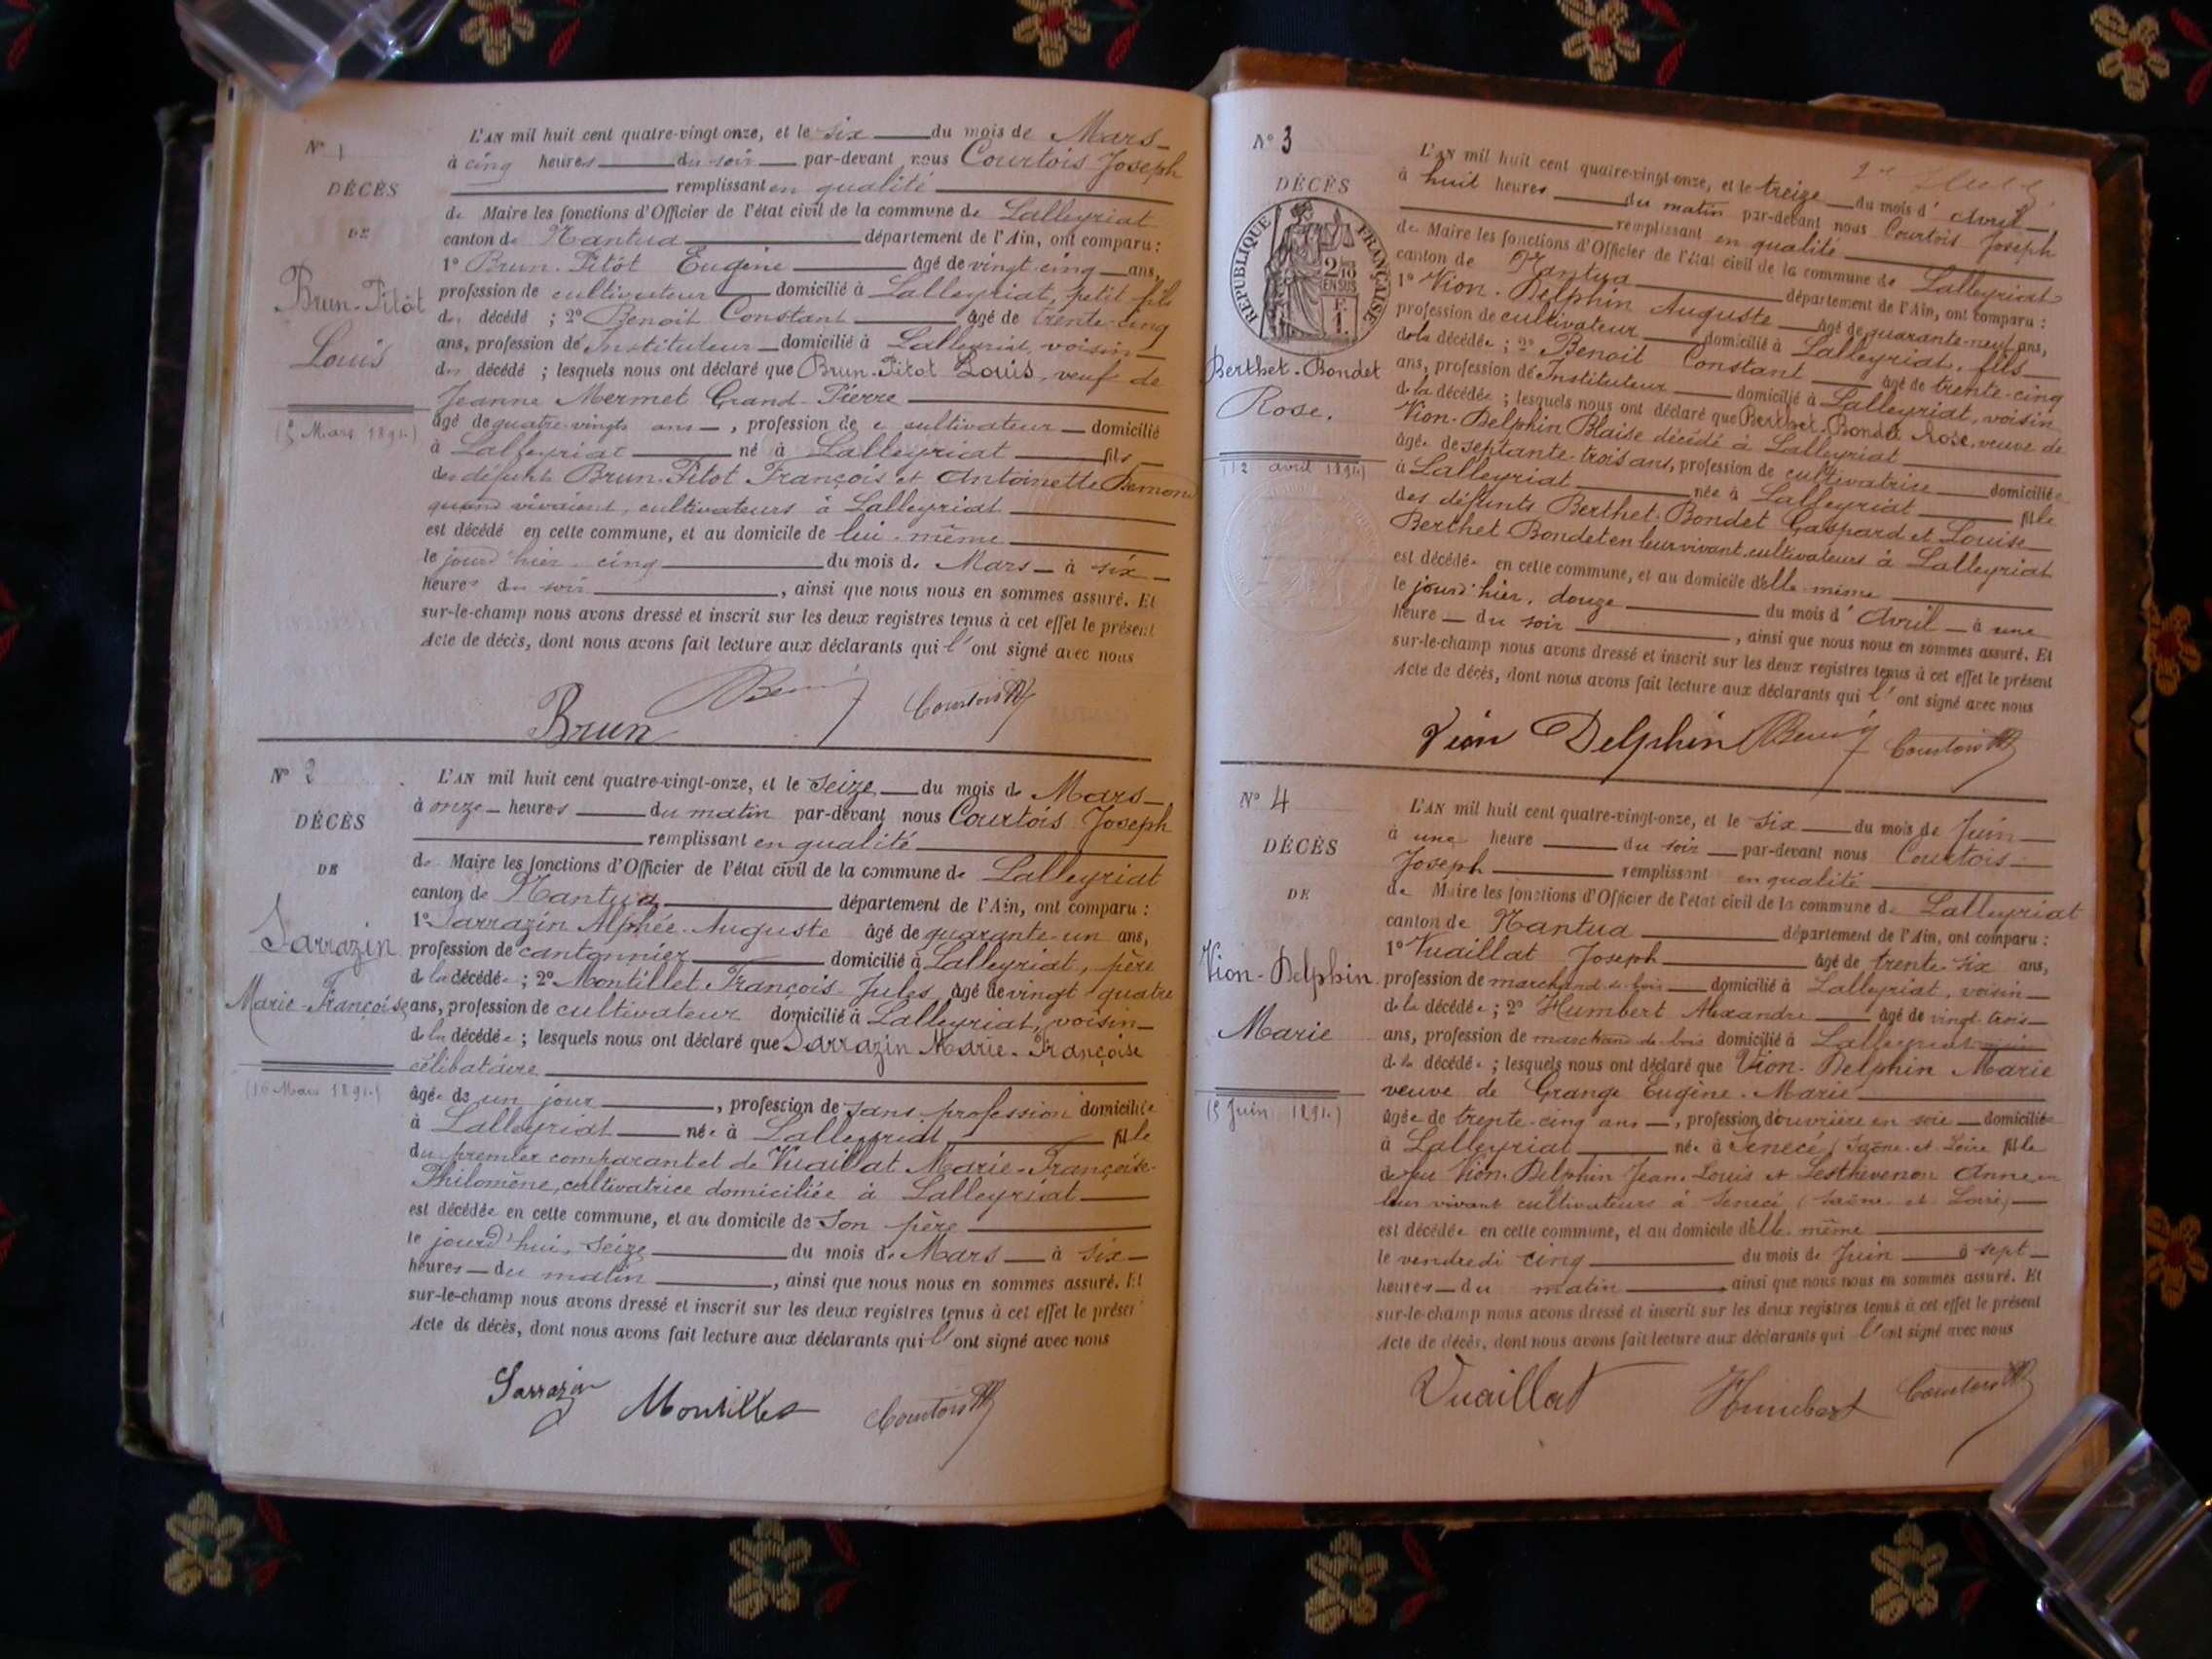 N° 1
DÉCÈS
DE
Brun-Pitôt
Louis
(5 Mars 1891.)
L'AN mil huit cent quatre-vingt onze, et le six du mois de Mars
à cinq heures du soir par-devant nous Courtois Joseph
remplissant en qualité
de Maire les fonctions d'Officier de l'état civil de la commune de Lalleyriat
canton de Nantua département de l'Ain, ont comparu :
1° Brun-Pitôt Eugène âgé de vingt-cinq ans,
profession de cultivateur domicilié à Lalleyriat, petit-fils
du décédé ; 2° Benoit Constant âgé de trente-cinq
ans, profession de Instituteur domicilié à Lalleyriat, voisin
du décédé ; lesquels nous ont déclaré que Brun-Pitot Louis, veuf de
Jeanne Mermet Grand-Pierre
âgé de quatre-vingts ans, profession de cultivateur domicilié
à Lalleyriat né à Lalleyriat fils
des défunts Brun-Pitot François et Antoinette
quand vivaient, cultivateurs à Lalleyriat
est décédé en cette commune, et au domicile de lui-même
le jour d'hier cinq du mois de Mars à six
heures du soir, ainsi que nous nous en sommes assuré. Et
sur-le-champ nous avons dressé et inscrit sur les deux registres tenus à cet effet le présent
Acte de décès, dont nous avons fait lecture aux déclarants qui l'ont signé avec nous
Brun Courtois
N° 2
DÉCÈS
DE
Sarrazin
Marie-Françoise
(16 Mars 1891.)
L'AN mil huit cent quatre-vingt-onze, et le Seize du mois de Mars
à onze heures du matin par-devant nous Courtois Joseph
remplissant en qualité
de Maire les fonctions d'Officier de l'état civil de la commune de Lalleyriat
canton de Nantua département de l'Ain, ont comparu :
1° Sarrazin Alphée-Auguste âgé de quarante-un ans,
profession de cantonnier domicilié à Lalleyriat, père
de la décédée ; 2° Montillet François-Jules âgé de vingt-quatre
ans, profession de cultivateur domicilié à Lalleyriat, voisin
de la décédée ; lesquels nous ont déclaré que Sarrazin Marie-Françoise
célibataire
âgée de un jour, profession de sans profession domiciliée
à Lalleyriat née à Lalleyriat fille
du premier comparant et de Vuaillat Marie-Françoise-
Philomène, cultivatrice domiciliée à Lalleyriat
est décédée en cette commune, et au domicile de Son père
le jourd'hui, seize du mois de Mars à six
heures du matin, ainsi que nous nous en sommes assuré. Et
sur-le-champ nous avons dressé et inscrit sur les deux registres tenus à cet effet le présent
Acte de décès, dont nous avons fait lecture aux déclarants qui l'ont signé avec nous
Sarrazin Montillet Courtois
N° 3
DÉCÈS
RÉPUBLIQUE FRANÇAISE
2/10 EN SUS
1 F.
Berthet-Bondet
Rose.
(12 avril 1891.)
L'AN mil huit cent quatre-vingt-onze, et le treize du mois d'Avril
à huit heures du matin par-devant nous Courtois Joseph
remplissant en qualité
de Maire les fonctions d'Officier de l'état civil de la commune de Lalleyriat
canton de Nantua département de l'Ain, ont comparu :
1° Vion-Delphin Auguste âgé de quarante-neuf ans,
profession de cultivateur domicilié à Lalleyriat, fils
de la décédée ; 2° Benoit Constant âgé de trente-cinq
ans, profession de Instituteur domicilié à Lalleyriat, voisin
de la décédée ; lesquels nous ont déclaré que Berthet-Bondet Rose, veuve de
Vion-Delphin Blaise décédé à Lalleyriat
âgée de septante-trois ans, profession de cultivatrice domiciliée
à Lalleyriat née à Lalleyriat fille
des défunts Berthet-Bondet Gaspard et Louise
Berthet Bondet en leur vivant cultivateurs à Lalleyriat
est décédée en cette commune, et au domicile d'elle-même
le jour d'hier, douze du mois d'Avril à une
heure du soir, ainsi que nous nous en sommes assuré. Et
sur-le-champ nous avons dressé et inscrit sur les deux registres tenus à cet effet le présent
Acte de décès, dont nous avons fait lecture aux déclarants qui l'ont signé avec nous
Vion Delphin Courtois
N° 4
DÉCÈS
DE
Vion-Delphin
Marie
(5 Juin 1891.)
L'AN mil huit cent quatre-vingt-onze, et le six du mois de Juin
à une heure du soir par-devant nous Courtois
Joseph remplissant en qualité
de Maire les fonctions d'Officier de l'état civil de la commune de Lalleyriat
canton de Nantua département de l'Ain, ont comparu :
1° Vuaillat Joseph âgé de trente-six ans,
profession de marchand de bois domicilié à Lalleyriat, voisin
de la décédée ; 2° Humbert Alexandre âgé de vingt-trois
ans, profession de marchand de bois domicilié à Lalleyriat voisin
de la décédée ; lesquels nous ont déclaré que Vion-Delphin Marie
veuve de Grange Eugène-Marie
âgée de trente-cinq ans, profession d'ouvrière en soie domiciliée
à Lalleyriat née à Senecé (Saône-et-Loire fille
de feu Vion-Delphin Jean-Louis et Lesthevenon Anne en
leur vivant cultivateurs à Senecé (Saône-et-Loire)
est décédée en cette commune, et au domicile d'elle-même
le vendredi cinq du mois de Juin à sept
heures du matin, ainsi que nous nous en sommes assuré. Et
sur-le-champ nous avons dressé et inscrit sur les deux registres tenus à cet effet le présent
Acte de décès, dont nous avons fait lecture aux déclarants qui l'ont signé avec nous
Vuaillat Humbert Courtois